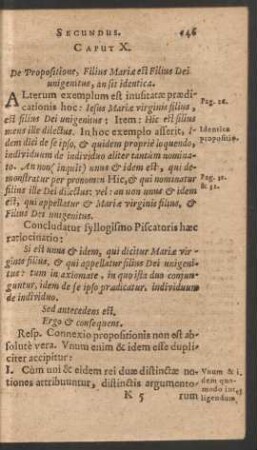 SECUNDUS. 146
CAPUT X.
De Propositione, Filius Mariæ est Filius Dei
unigenitus, an sit identica.
ALterum exemplum est inusitatæ prædi-
cationis hoc: Iesus Mariæ virginis filius, Pag. 28.
est filius Dei unigenitus: Item: Hic est filius
meus ille dilectus. In hoc exemplo asserit, i- Identica
dem dici de se ipso, & quidem propriè loquendo, propositio.
individuum de individuo aliter tantùm nomina-
to. An non (inquit) unus & idem est, qui de- Pag. 30.
monstratur per pronomen Hic, & qui nominatur & 31.
filius ille Dei dilectus: vel: an non unus & idem
est, qui appellatur & Mariæ virginis filius, &
Filius Dei unigenitus.
Concludatur syllogismo Piscatoris hæc
ratiocinatio:
Si est unus & idem, qui dicitur Mariæ vir-
ginis filius, & qui appellatur filius Dei unigeni-
tus: tum in axiomate, in quo ista duo conjun-
guntur, idem de se ipso prædicatur, individuum
de individuo.
Sed antecedens est.
Ergo & consequent.
Resp. Connexio propositionis non est ab-
solutè vera. Vnum enim & idem esse dupli-
citer accipitur:
I. Cùm uni & eidem rei duæ distinctæ no- Vnum & i-
tiones attribuuntur, distinctis argumento- dem quo-
modo int.
K 5 rum ligendum.